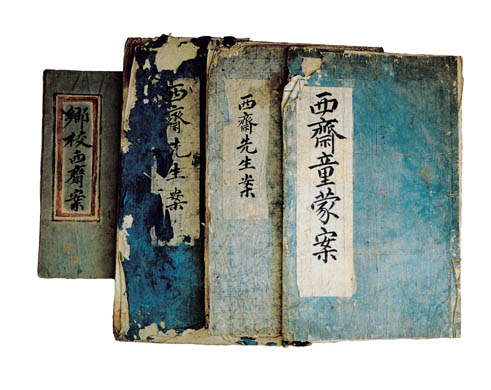 鄉校西齋案
西齋先生案
西齋先生案
西齋童蒙案